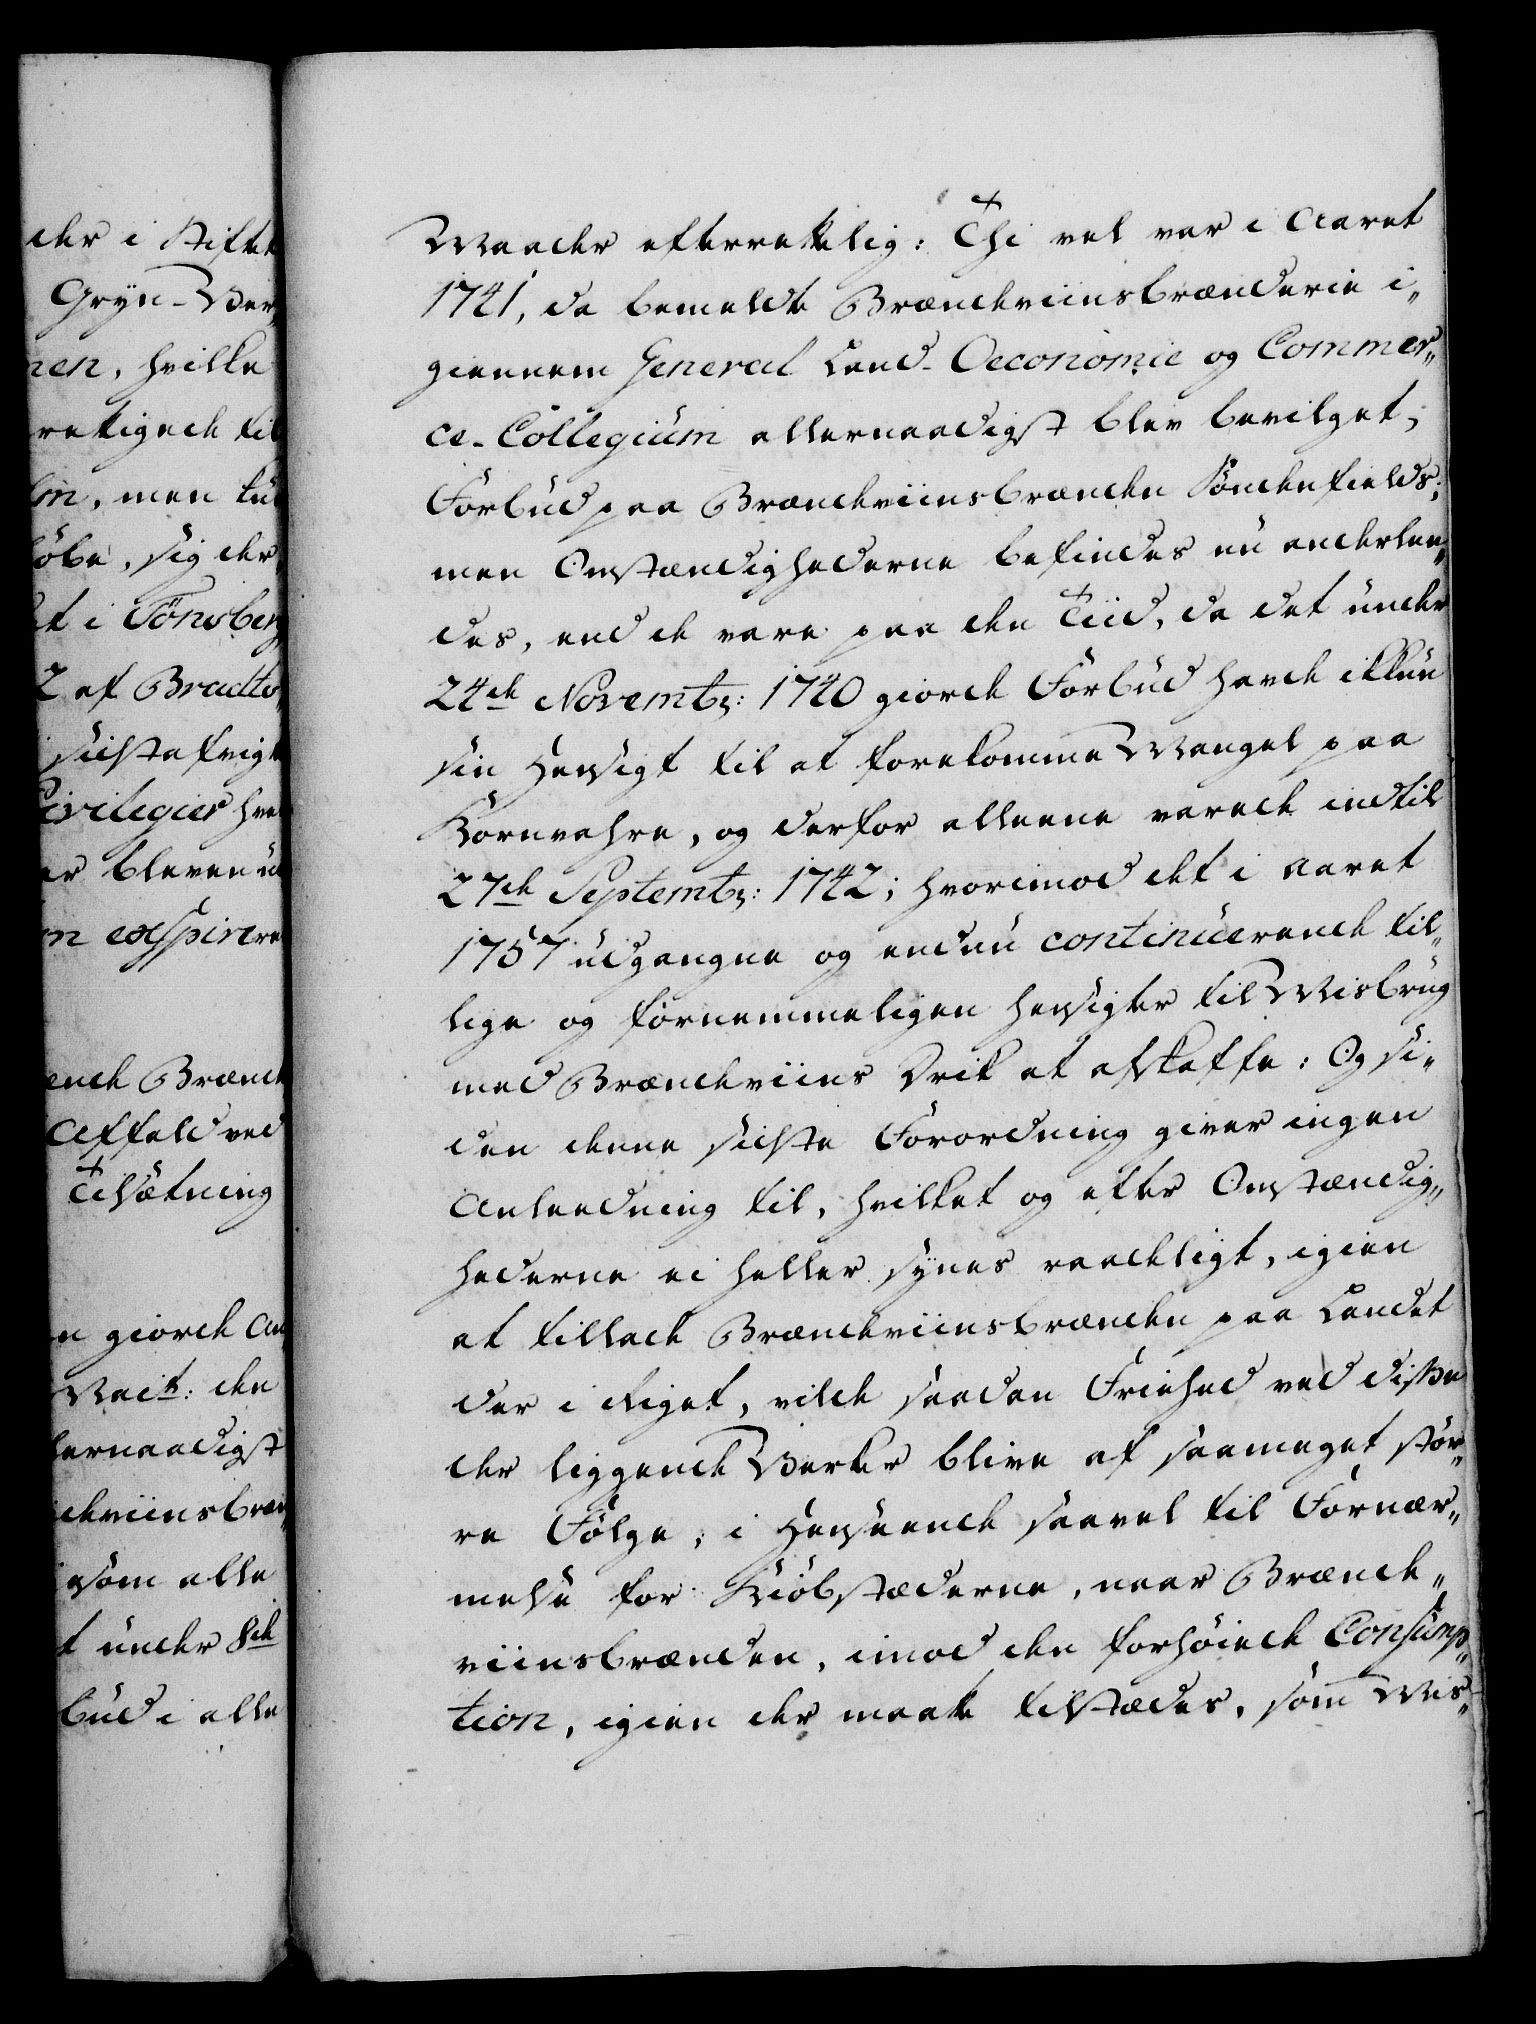 der i Stiftet
Gryn-Ver„
nen, hvilke
rettigede til
lin, men tu
kiøbe, sig der
et i Tönsberg
2 af Bradto
sidst afvigt
Privilegier hva
er bleven u
n exspirere
ende Brænde
Affald ved
Tilsætning
n giorde An„
Mait: den
lernaadigst
ndeviinsbræn„
som alle
t under 8de
bud i alle
Maader efterrettelig: Thi vel var i Aaret
1741, da bemeldte Brændeviinsbrænderie i„
giennem General Land-Oeconomie og Commer„
ce-Collegium allernaadigst blev bevilget,
Forbud paa Brændeviinsbrænden Söndenfields;
men Omstændighederne befindes nu anderlee„
des, end de vare paa den Tiid, da det under
24de Novembr: 1740 giorde Forbud havde ikkun
sin Hensigt til at forekomme Mangel paa
Kornvahre, og derfor alleene varede indtil
27de Septembr: 1742; hvorimod det i Aaret
1757 udgangne og endnu continuerende til„
lige og fornemmeligen hensigter til Misbrug
med Brændeviins Drik at afskaffe: Og si„
den denne sidste Forordning giver ingen
Anleedning til, hvilket og efter Omstændig„
hederne ei heller synes raadeligt, igien
at tillade Brændeviinsbrænden paa Landet
der i Riget, vilde saadan Friehed ved disse
der liggende Verker blive af saameget stör„
re Fölge, i Henseende saavel til Fornær„
melse for Kiöbstæderne, naar Brænde„
viinsbrænden, imod den forhöiede Consump„
tion, igien der maatte tilstædes, som Mis„